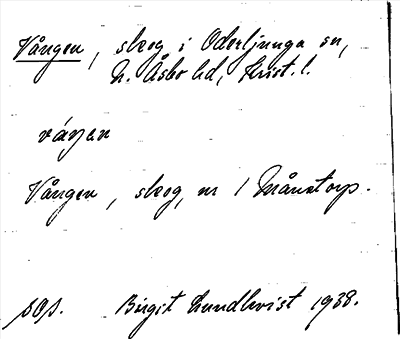 Vången, skog i Oderljunga sn,
N. Åsbo hd, Krist. l.
våŋen
Vången, skog, nr 1 Månstorp.
sOp. Birgit Lundkvist 1938.